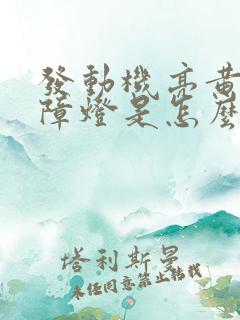 發動機亮黃
障燈是怎麼
塔利斯曼
未經同意禁止轉載